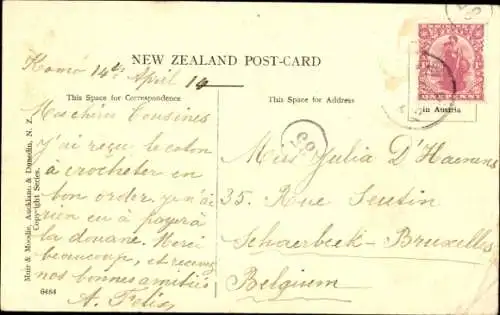 NEW ZEALAND POST-CARD
Kamo 14th April 14
This Space for Correspondence
This Space for Address
in Austria
Mes chères Cousines
J'ai reçu le coton
à crocheter en
bon order, je n'ai
rien eu à payer à
la douane. Merci
beaucoup, et recevez
nos bonnes amitiés
A. Felix
Miss Julia D'Haenens
35. Rue Seutin
Schaerbeek-Bruxelles
Belgium
Muir & Moodie, Auckland & Dunedin, N. Z.
Copyright Series.
6484